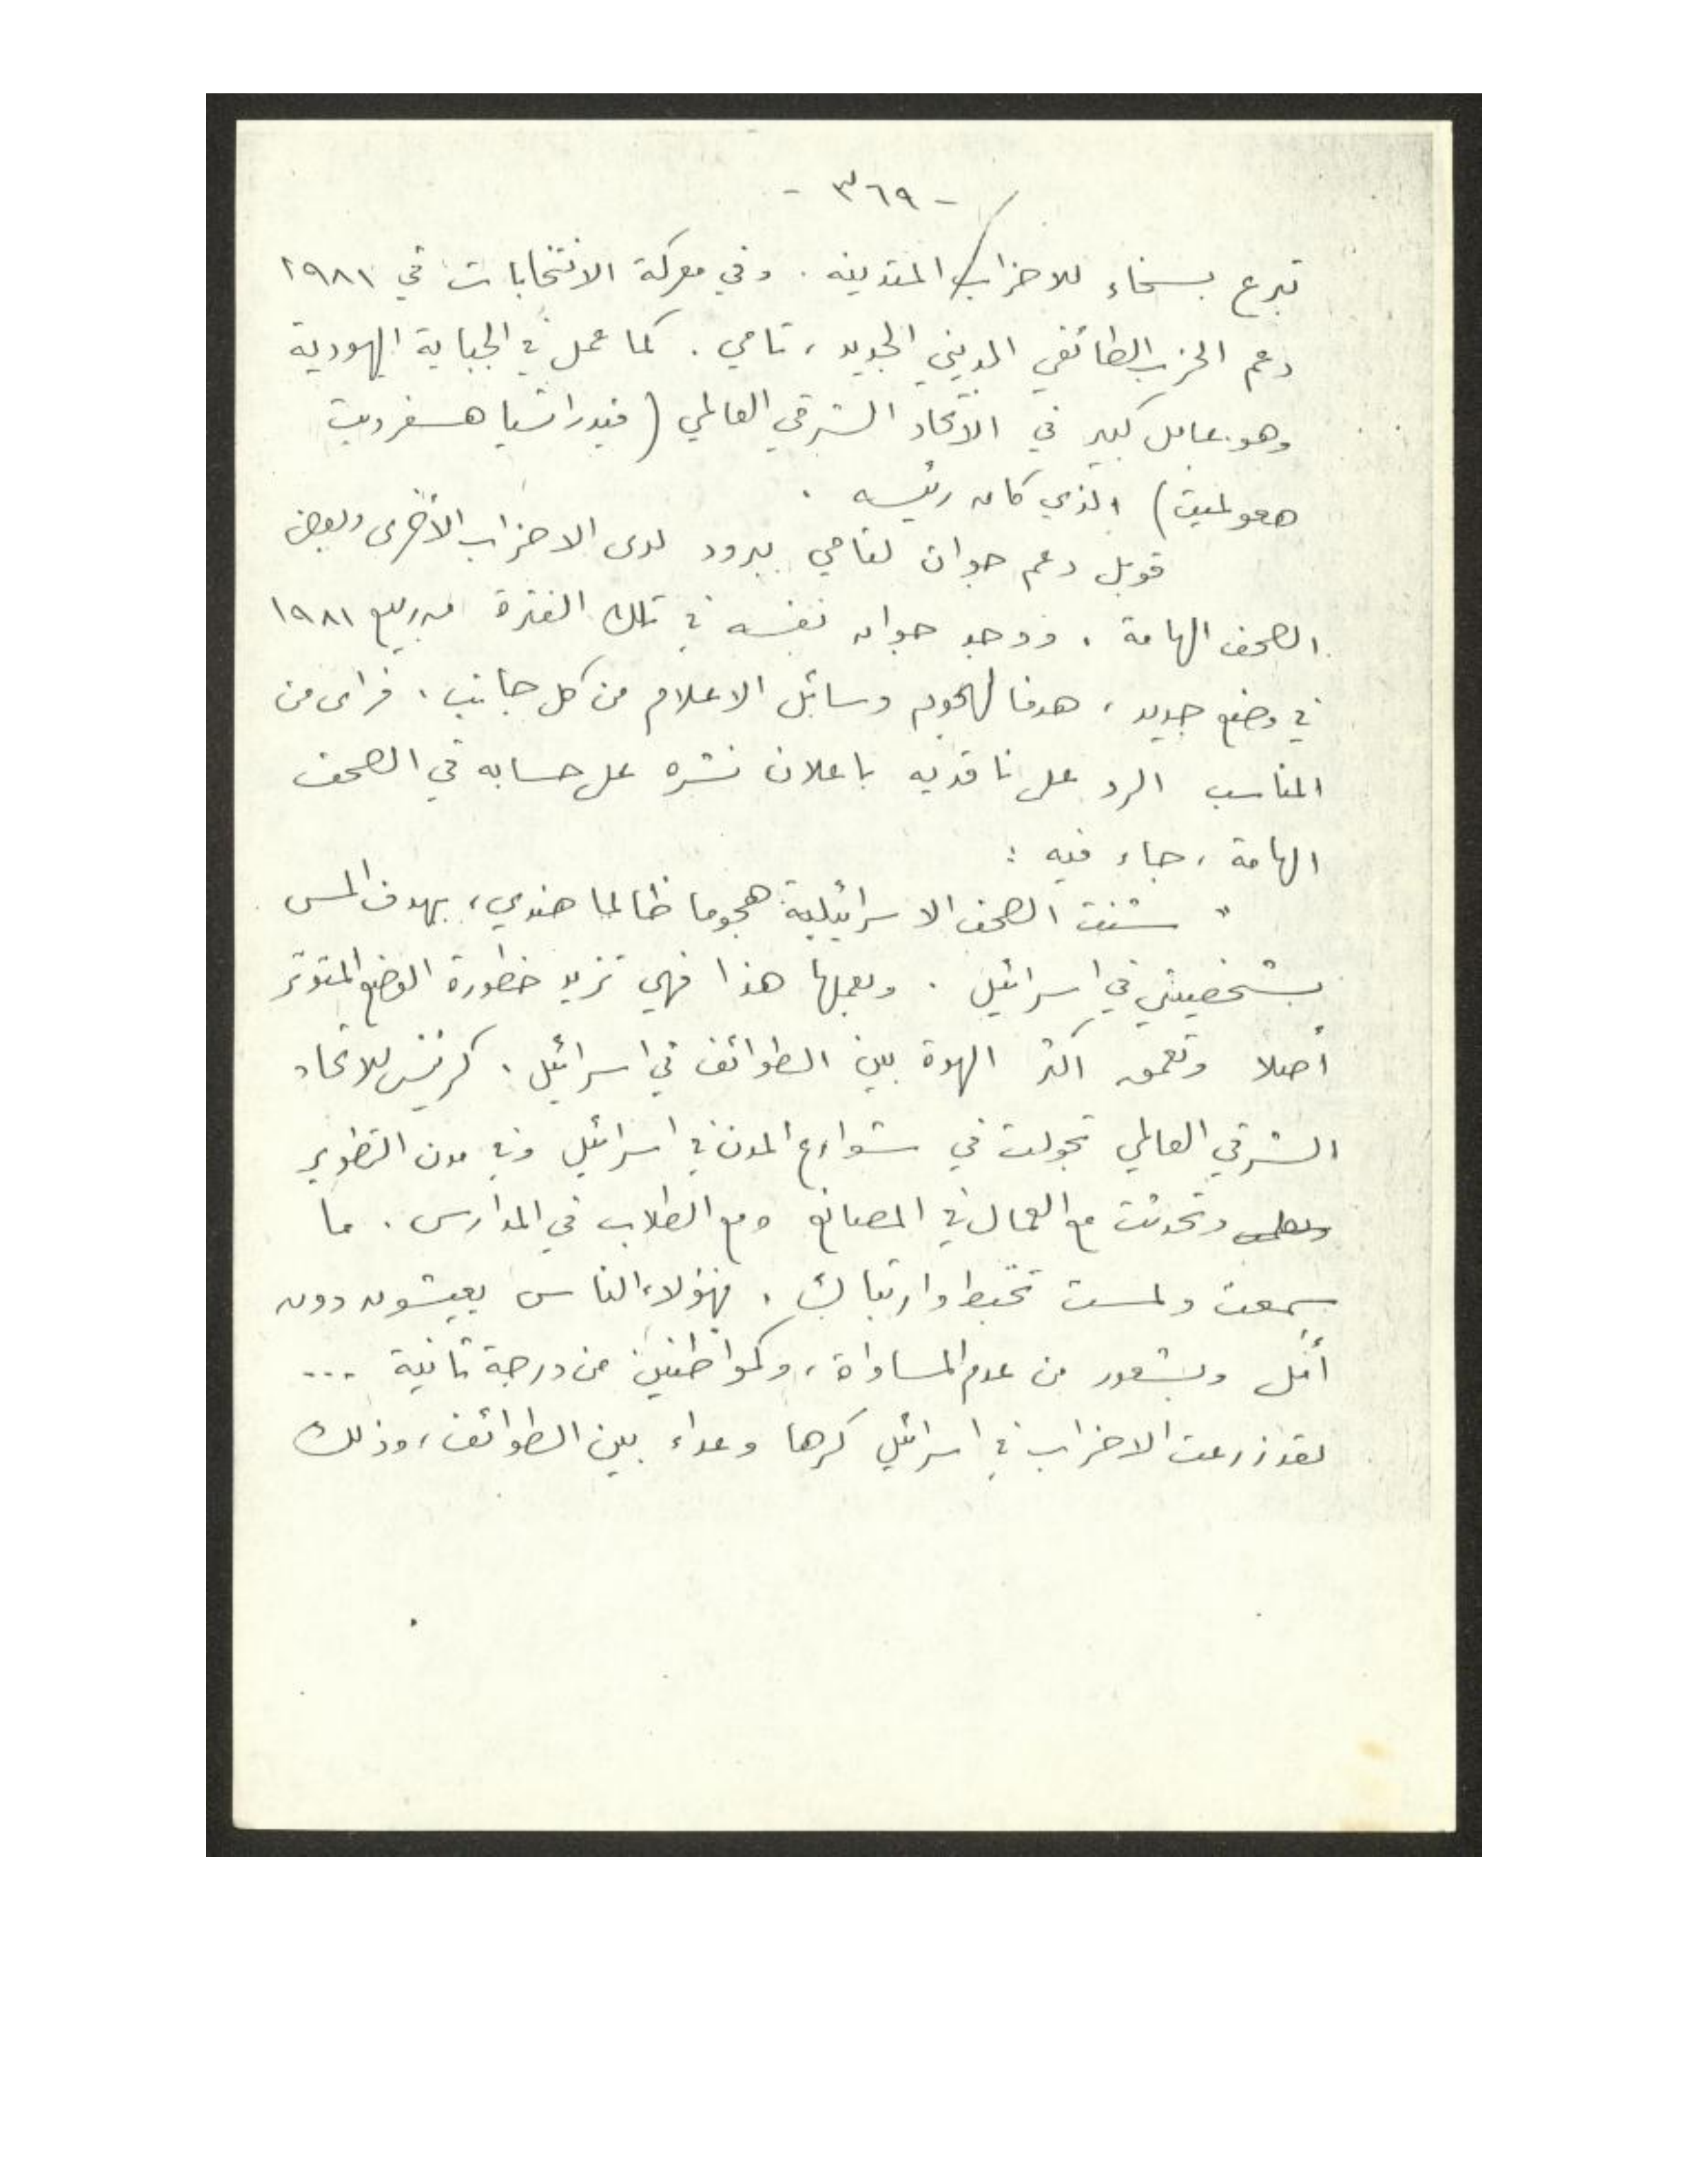 - ٣٦٩ -
تبرع بسخاء للاحزاب المتدينه . وفي معركة الانتخابات في ١٩٨١
دعم الحزب الطائفي الديني الجديد ، تامي . كما عمل في الجباية اليهودية
وهو عامل كبير في الاتحاد الشرقي العالمي ( فيدراتسيا هسفرديت
هعولميت ) الذي كان رئيسه .
قوبل دعم جوان لتامي ببرود لدى الاحزاب الأخرى وبعض
الصحف الهامة . ووجد جوان نفسه في تلك الفترة من ربيع ١٩٨١
في وضع جديد ، هدفا لهجوم وسائل الاعلام من كل جانب . فرأى من
المناسب الرد على ناقديه باعلان نشره على حسابه في الصحف
الهامة ، جاء فيه :
" شنت الصحف الاسرائيلية هجوما ظالما ضدي ، بهدف المس
بشخصيتي في اسرائيل . وبعملها هذا فهي تزيد خطورة الوضع المتوتر
أصلا وتعمق اكثر الهوة بين الطوائف في اسرائيل . كرئيس للاتحاد
الشرقي العالمي تجولت في شوارع المدن في اسرائيل وفي مدن التطوير
وتحدثت مع العمال في المصانع ومع الطلاب في المدارس . ما
سمعت ولمست تخبط وارتباك . فهؤلاء الناس يعيشون دون
أمل وبشعور من عدم المساواة ، وكمواطنين من درجة ثانية ...
لقد زرعت الاحزاب في اسرائيل كرها وعداء بين الطوائف ، وذلك